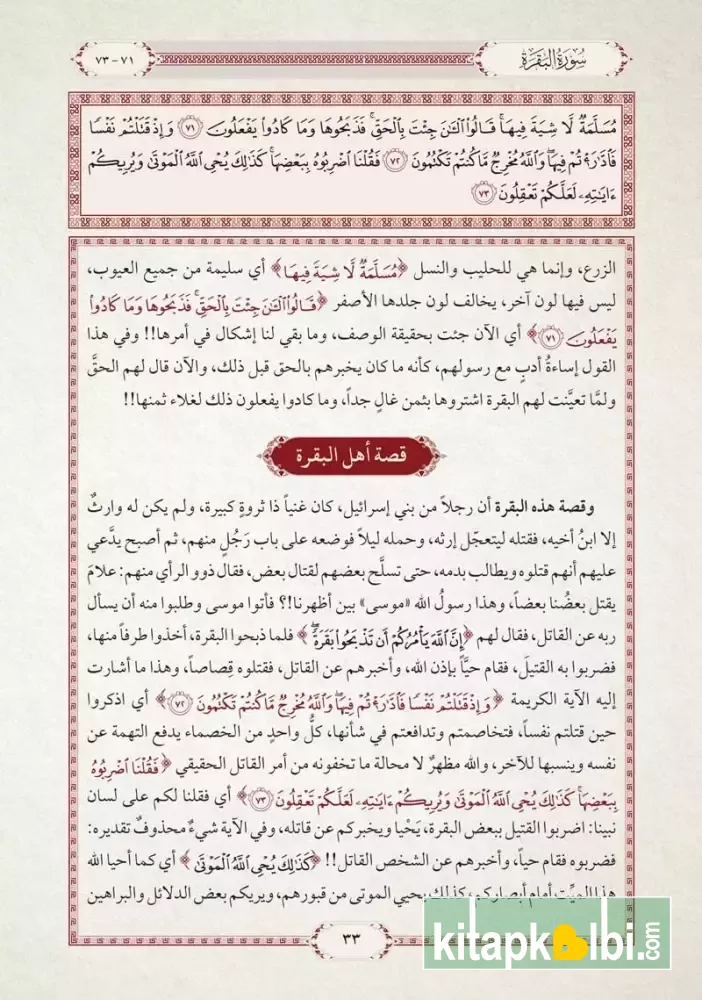 سُورَةُ البَقَرَةِ
٧١ - ٧٣
مُسَلَّمَةٌ لَّا شِيَةَ فِيهَاۚ قَالُوا۟ ٱلْـَٰٔنَ جِئْتَ بِٱلْحَقِّۚ فَذَبَحُوهَا وَمَا كَادُوا۟ يَفْعَلُونَ ٧١ وَإِذْ قَتَلْتُمْ نَفْسًا
فَٱدَّٰرَْٰٔتُمْ فِيهَاۖ وَٱللَّهُ مُخْرِجٌ مَّا كُنتُمْ تَكْتُمُونَ ٧٢ فَقُلْنَا ٱضْرِبُوهُ بِبَعْضِهَاۚ كَذَٰلِكَ يُحْىِ ٱللَّهُ ٱلْمَوْتَىٰ وَيُرِيكُمْ
ءَايَٰتِهِۦ لَعَلَّكُمْ تَعْقِلُونَ ٧٣
الزرع، وإنما هي للحليب والنسل ﴿مُسَلَّمَةٌ لَّا شِيَةَ فِيهَا﴾ أي سليمة من جميع العيوب،
ليس فيها لون آخر، يخالف لون جلدها الأصفر ﴿قَالُوا۟ ٱلْـَٰٔنَ جِئْتَ بِٱلْحَقِّۚ فَذَبَحُوهَا وَمَا كَادُوا۟
يَفْعَلُونَ ٧١﴾ أي الآن جئت بحقيقة الوصف، وما بقي لنا إشكال في أمرها!! وفي هذا
القول إساءةُ أدبٍ مع رسولهم، كأنه ما كان يخبرهم بالحق قبل ذلك، والآن قال لهم الحقَّ
ولمَّا تعيَّنت لهم البقرة اشتروها بثمن غالٍ جداً، وما كادوا يفعلون ذلك لغلاء ثمنها!!
قصة أهل البقرة
وقصة هذه البقرة أن رجلاً من بني إسرائيل، كان غنياً ذا ثروةٍ كبيرة، ولم يكن له وارثٌ
إلا ابنُ أخيه، فقتله ليتعجّل إرثه، وحمله ليلاً فوضعه على باب رَجُلٍ منهم، ثم أصبح يدَّعي
عليهم أنهم قتلوه ويطالب بدمه، حتى تسلَّح بعضهم لقتال بعض، فقال ذوو الرأي منهم: علامَ
يقتل بعضُنا بعضاً، وهذا رسولُ الله «موسى» بين أظهرنا!؟ فأتوا موسى وطلبوا منه أن يسأل
ربه عن القاتل، فقال لهم ﴿إِنَّ ٱللَّهَ يَأْمُرُكُمْ أَن تَذْبَحُوا۟ بَقَرَةًۖ﴾ فلما ذبحوا البقرة، أخذوا طرفاً منها،
فضربوا به القتيلَ، فقام حيَّاً بإذن الله، وأخبرهم عن القاتل، فقتلوه قِصاصاً، وهذا ما أشارت
إليه الآية الكريمة ﴿وَإِذْ قَتَلْتُمْ نَفْسًا فَٱدَّٰرَْٰٔتُمْ فِيهَاۖ وَٱللَّهُ مُخْرِجٌ مَّا كُنتُمْ تَكْتُمُونَ ٧٢﴾ أي اذكروا
حين قتلتم نفساً، فتخاصمتم وتدافعتم في شأنها، كلُّ واحدٍ من الخصماء يدفع التهمة عن
نفسه وينسبها للآخر، والله مظهرٌ لا محالة ما تخفونه من أمر القاتل الحقيقي ﴿فَقُلْنَا ٱضْرِبُوهُ
بِبَعْضِهَاۚ كَذَٰلِكَ يُحْىِ ٱللَّهُ ٱلْمَوْتَىٰ وَيُرِيكُمْ ءَايَٰتِهِۦ لَعَلَّكُمْ تَعْقِلُونَ ٧٣﴾ أي فقلنا لكم على لسان
نبينا: اضربوا القتيل ببعض البقرة، يَحْيا ويخبركم عن قاتله، وفي الآية شيءٌ محذوفٌ تقديره:
فضربوه فقام حياً، وأخبرهم عن الشخص القاتل!! ﴿كَذَٰلِكَ يُحْىِ ٱللَّهُ ٱلْمَوْتَىٰ﴾ أي كما أحيا الله
هذا الميِّت أمام أبصاركم، كذلك يحيي الموتى من قبورهم، ويريكم بعض الدلائل والبراهين
٣٣
kitapkalbi.com